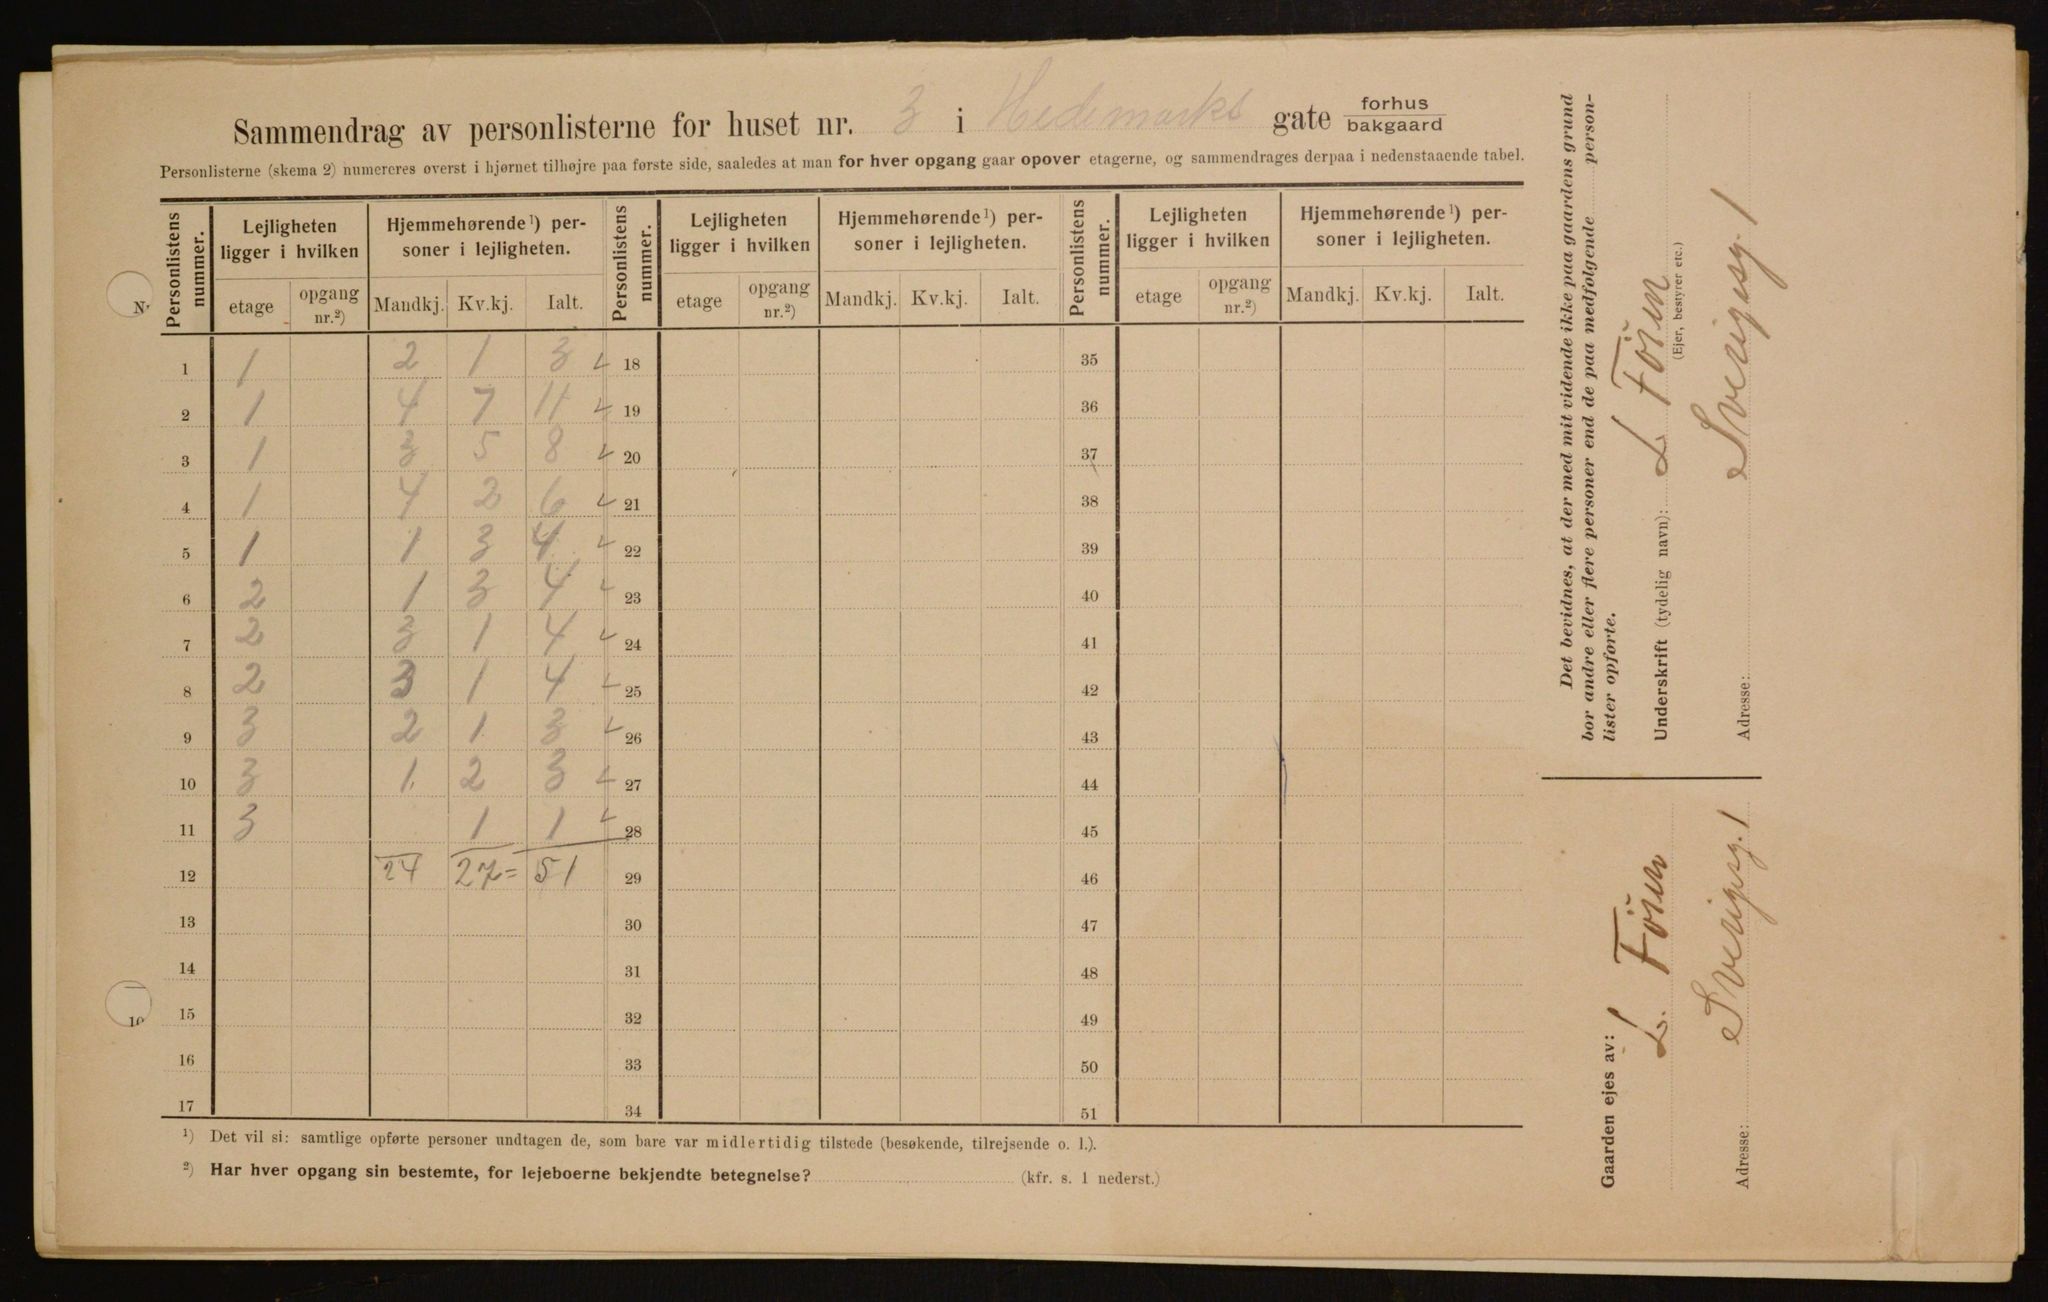 Sammendrag av personlisterne for huset nr. 3 i Hedemarks gate forhus
bakgaard
Personlisterne (skema 2) numereres øverst i hjørnet tilhøjre paa første side, saaledes at man for hver opgang gaar opover etagerne, og sammendrages derpaa i nedenstaaende tabel.
Personlistens nummer. Lejligheten ligger i hvilken Hjemmehørende ¹) personer i lejligheten. Personlistens nummer. Lejligheten ligger i hvilken Hjemmehørende ¹) personer i lejligheten. Personlistens nummer. Lejligheten ligger i hvilken Hjemmehørende ¹) personer i lejligheten.
etage opgang nr.²) Mandkj. Kv.kj. Ialt. etage opgang nr.²) Mandkj. Kv.kj. Ialt. etage opgang nr.²) Mandkj. Kv.kj. Ialt.
1 1 2 1 3 18 35
2 1 4 7 11 19 36
3 1 3 5 8 20 37
4 1 4 2 6 21 38
5 1 1 3 4 22 39
6 2 1 3 4 23 40
7 2 3 1 4 24 41
8 2 3 1 4 25 42
9 3 2 1 3 26 43
10 3 1 2 3 27 44
11 3 1 1 28 45
12 24 27 = 51 29 46
13 30 47
14 31 48
15 32 49
16 33 50
17 34 51
¹) Det vil si: samtlige opførte personer undtagen de, som bare var midlertidig tilstede (besøkende, tilrejsende o. l.).
²) Har hver opgang sin bestemte, for lejeboerne bekjendte betegnelse? (kfr. s. 1 nederst.)
Det bevidnes, at der med mit vidende ikke paa gaardens grund
bor andre eller flere personer end de paa medfølgende person-
lister opførte.
Underskrift (tydelig navn): L Föien
(Ejer, bestyrer etc.)
Adresse: Sverigesg. 1
Gaarden ejes av:
L. Föien
Adresse: Sverigesg. 1